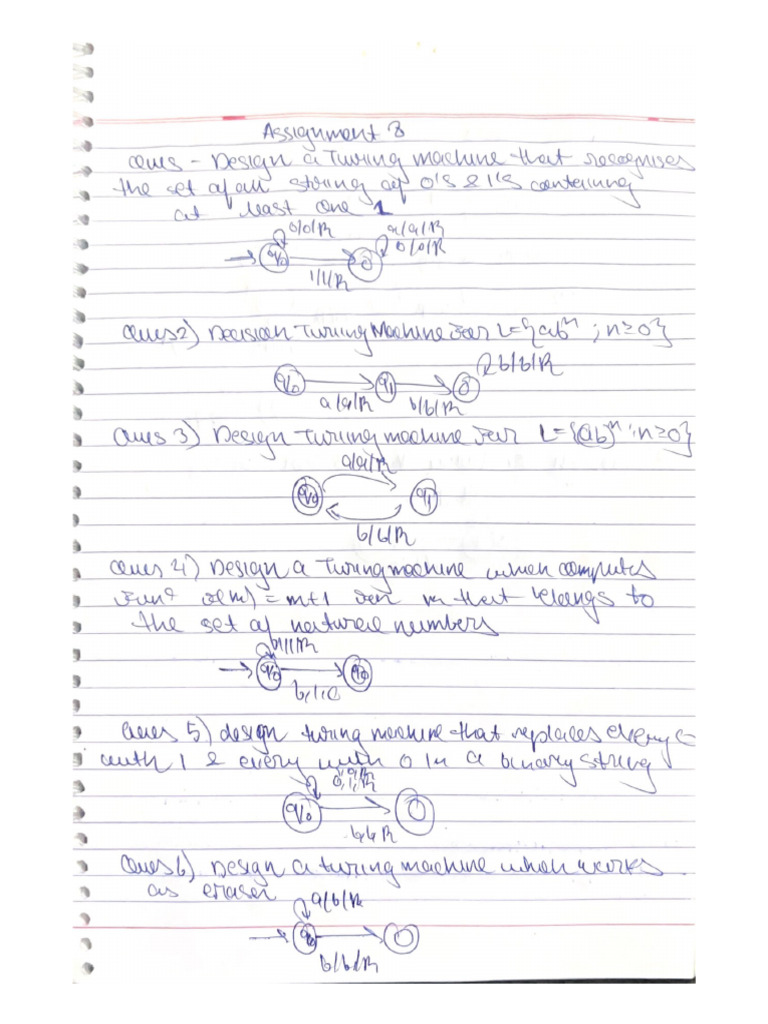 Assignment 8
Ques - Design a Turing machine that recognises
the set of all string of 0's & 1's containing
at least one 1
0/0/R
0/0/R
1/1/R
q0
Ques 2) Decision Turing Machine for L={ab^n ; n≥0}
b/b/R
q0 q1
a/a/R b/b/R
Ques 3) Design Turing machine for L={(ab)^n ; n≥0}
a/a/R
q0 q1
b/b/R
Ques 4) Design a Turing machine which computes
m) = m+1 m that belongs to
the set of natural numbers
1/1/R
q0
Ques 5) design turing machine that replaces every
with 1 & every with 0 in a binary string
q0
b,b,R
Ques 6) Design a turing machine which works
as eraser
a/b/R
q0
b/b/R